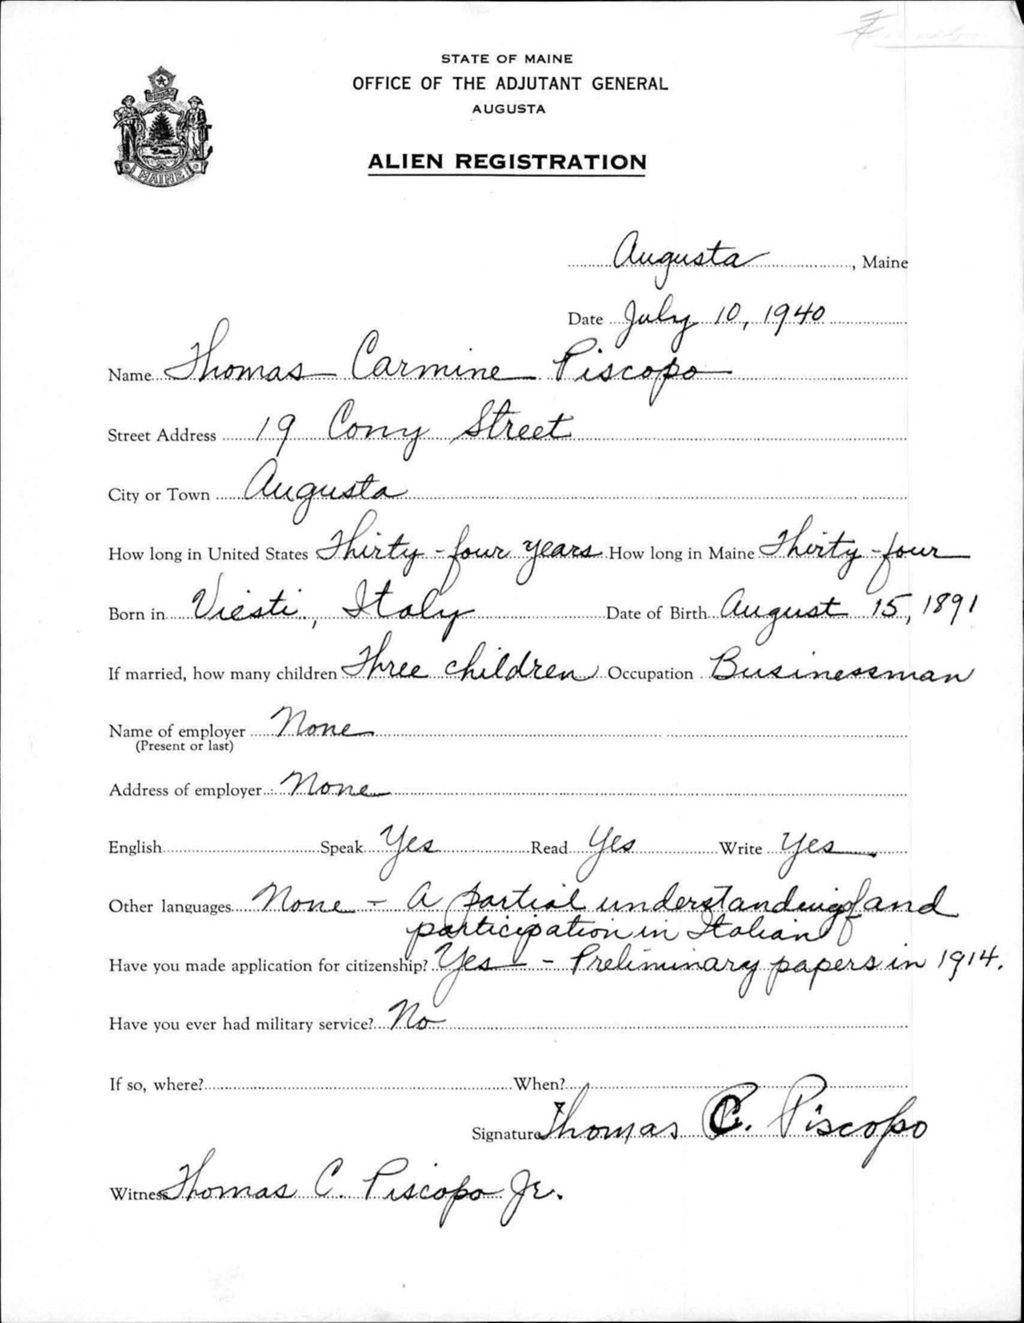 STATE OF MAINE
OFFICE OF THE ADJUTANT GENERAL
AUGUSTA
ALIEN REGISTRATION
MAINE
Augusta, Maine
Date July 10, 1940
Name Thomas Carmine Piscopo
Street Address 19 Cony Street
City or Town Augusta
How long in United States Thirty-four years How long in Maine Thirty-four
Born in Viesti, Italy Date of Birth August 15, 1891
If married, how many children Three children Occupation Businessman
Name of employer None
(Present or last)
Address of employer None
English Speak Yes Read Yes Write Yes
Other languages None - A partial understanding of and
participation in Italian
Have you made application for citizenship? Yes - Preliminary papers in 1914.
Have you ever had military service? No
If so, where? When?
Signature Thomas C. Piscopo
Witness Thomas C. Piscopo Jr.